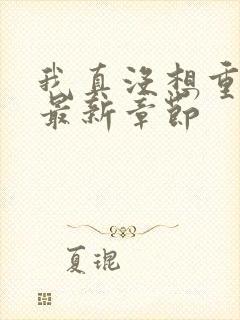 我真没想重
最新章节
夏琨